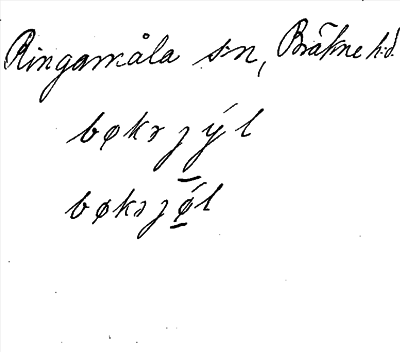 Ringamåla sn, Bräkne hd.
bøkrȷý̠l
bøkrȷǿ̠l